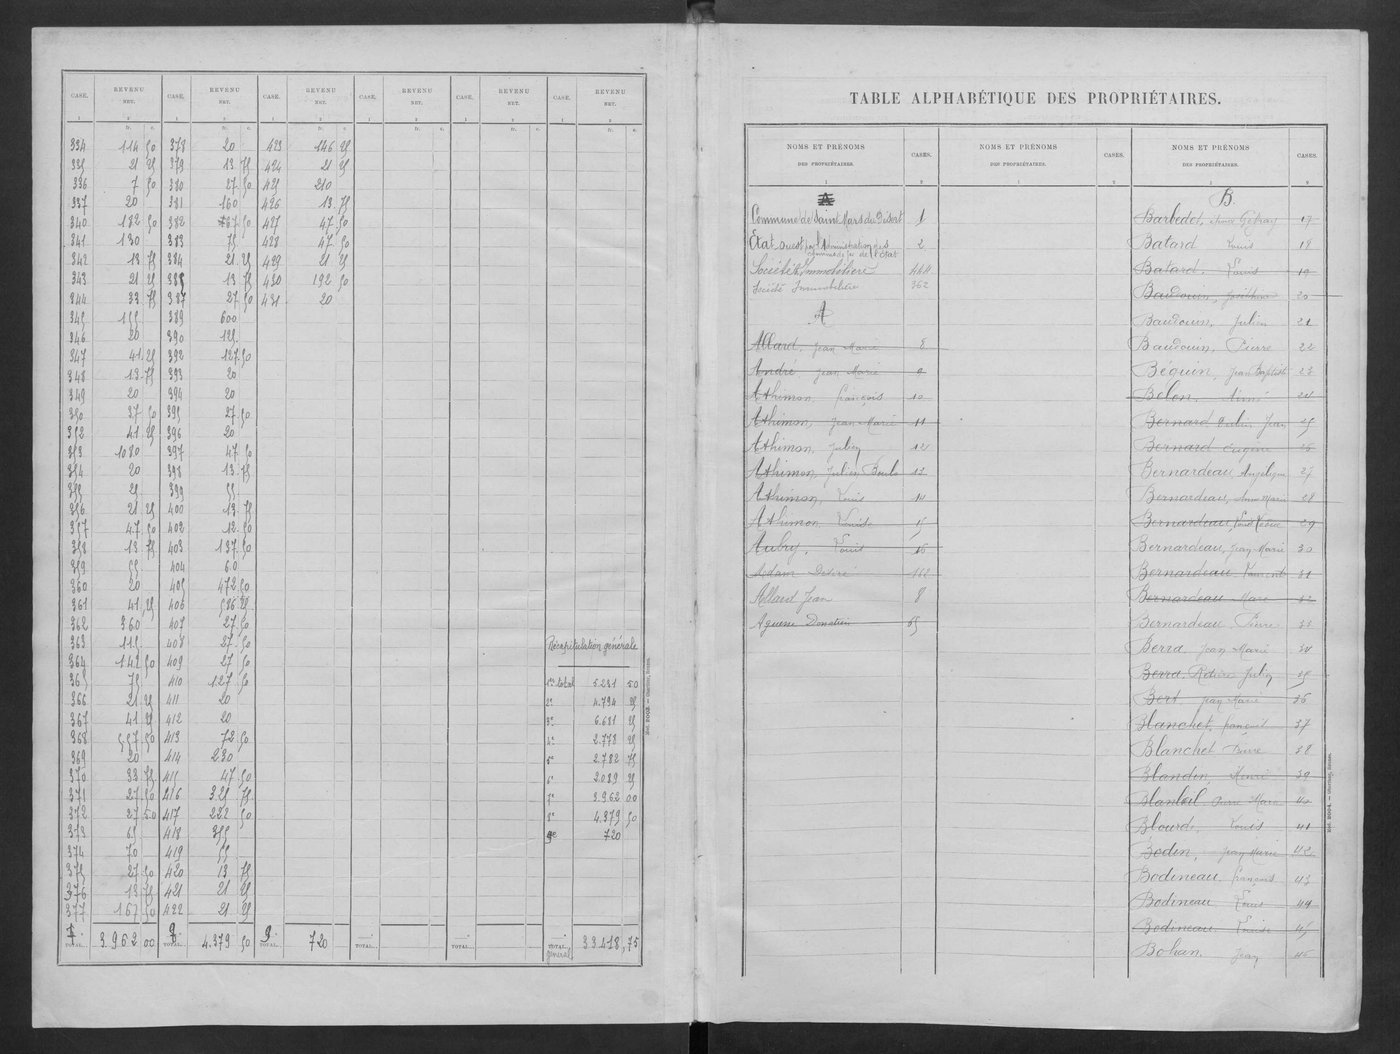 CASE. REVENU NET. CASE. REVENU NET. CASE. REVENU NET. CASE. REVENU NET. CASE. REVENU NET. CASE. REVENU NET.
1 2 1 2 1 2 1 2 1 2 1 2
fr. c. fr. c. fr. c. fr. c. fr. c. fr. c.
334 114 50 378 20 423 146 25
335 21 25 379 13 75 424 21 25
336 7 50 380 27 50 425 210
337 20 381 160 426 13 75
340 182 50 382 67 50 427 47 50
341 130 383 75 428 47 50
342 13 75 384 21 25 429 21 25
343 21 25 385 13 75 430 192 50
344 33 75 387 27 50 431 20
345 155 389 600
346 20 390 125
347 41 25 392 127 50
348 13 75 393 20
349 20 394 20
350 37 50 395 27 50
352 41 25 396 20
353 1080 397 47 50
354 20 398 13 75
355 25 399 55
356 21 25 400 13 75
357 47 50 402 12 50
358 13 75 403 137 50
359 55 404 60
360 20 405 472 50
361 41 25 406 586 25
362 360 407 27 50
363 115 408 27 50 Récapitulation générale
364 142 50 409 27 50
365 75 410 127 50 1er total 5.231 50
366 21 25 411 20 2e 4.794 25
367 41 25 412 20 3e 6.631 25
368 557 50 413 72 50 4e 2.778 25
369 20 414 230 5e 2.782 75
370 33 75 415 47 50 6e 2.089 25
371 27 50 416 325 75 7e 3.962 00
372 27 50 417 222 50 8e 4.379 50
373 65 418 355 9e 720
374 70 419 55
375 27 50 420 13 75
376 13 75 421 21 25
377 167 50 422 21 25
TOTAL. 3.962 00 TOTAL. 4.379 50 9 TOTAL. 720 TOTAL. TOTAL. TOTAL général 33.418,75
TABLE ALPHABÉTIQUE DES PROPRIÉTAIRES.
NOMS ET PRÉNOMS DES PROPRIÉTAIRES. CASES. NOMS ET PRÉNOMS DES PROPRIÉTAIRES. CASES. NOMS ET PRÉNOMS DES PROPRIÉTAIRES. CASES.
1 2 1 2 1 2
A
Commune de Saint Mars du Désert 1
État, ouest par l'Administration des
chemins de fer de l'État 2
Société Immobilière 444
Société Immobilière 362
A
Allard, Jean Marie 8
André Jean Marie 9
Athimon, François 10
Athimon, Jean Marie 11
Athimon, Julien 12
Athimon, Julien 13
Athimon, Louis 14
Athimon, Louise 15
Aubry, Louis 16
Adam Désiré 162
Allard Jean 8
Donatien 65
B.
Barbedet, 17
Batard Louis 18
Batard, Louis 19
Baudouin, 20
Baudouin, Julien 21
Baudouin, Pierre 22
Bequin, Jean Baptiste 23
Belon, Aimé 24
Bernard Jean 25
Bernard Eugène 26
Bernardeau, Angélique 27
Bernardeau, Anne Marie 28
Bernardeau, 29
Bernardeau, Jean Marie 30
Bernardeau Laurent 31
Bernardeau Marie 32
Bernardeau Pierre 33
Berra Jean Marie 34
Berra Julien 35
Bert Jean Marie 36
Blanchet, François 37
Blanchet Pierre 38
Blandin, Henri 39
Pierre Marie 40
Blourde, Louis 41
Bodin, Jean Marie 42
Bodineau, François 43
Bodineau Louis 44
Bodineau, Louise 45
Bohan, Jean 46